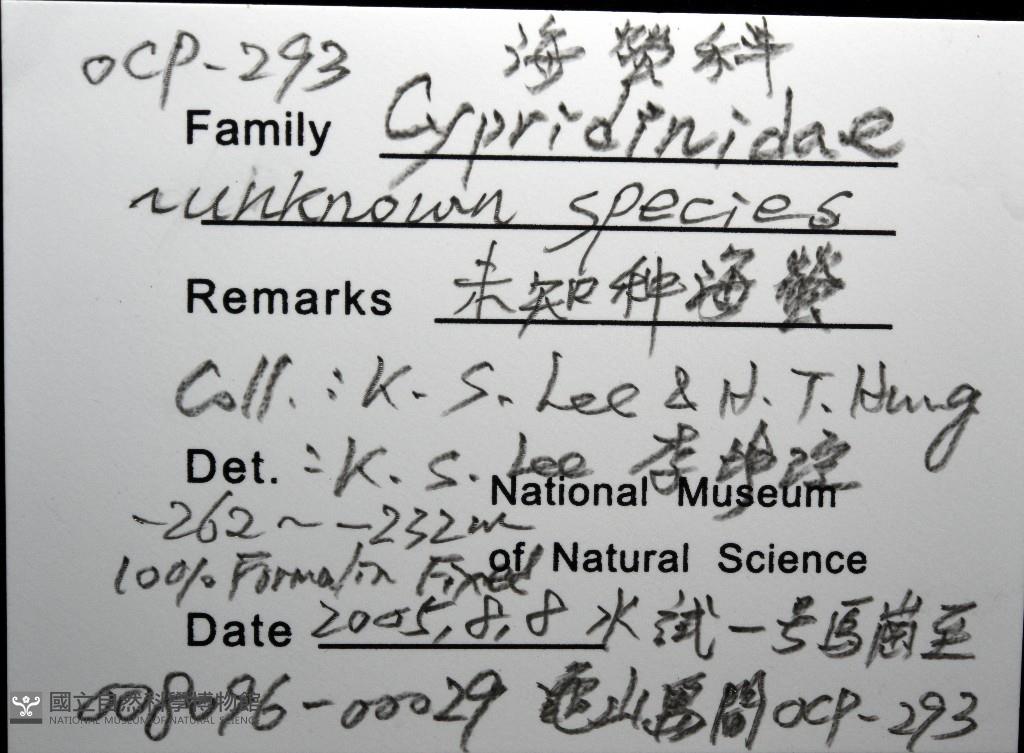 OCP-293 海螢科
Family Cypridinidae
~unknown species
Remarks 未知种海螢
Coll.: K. S. Lee & H. T. Hung
Det.: K. S. Lee 李坤瑄
National Museum
-262~-232m
of Natural Science
100% Formalin Fixed
Date 2005,8,8 水試一号馬崗至
-00029 龜山島間 OCP-293
國立自然科學博物館
NATIONAL MUSEUM OF NATURAL SCIENCE